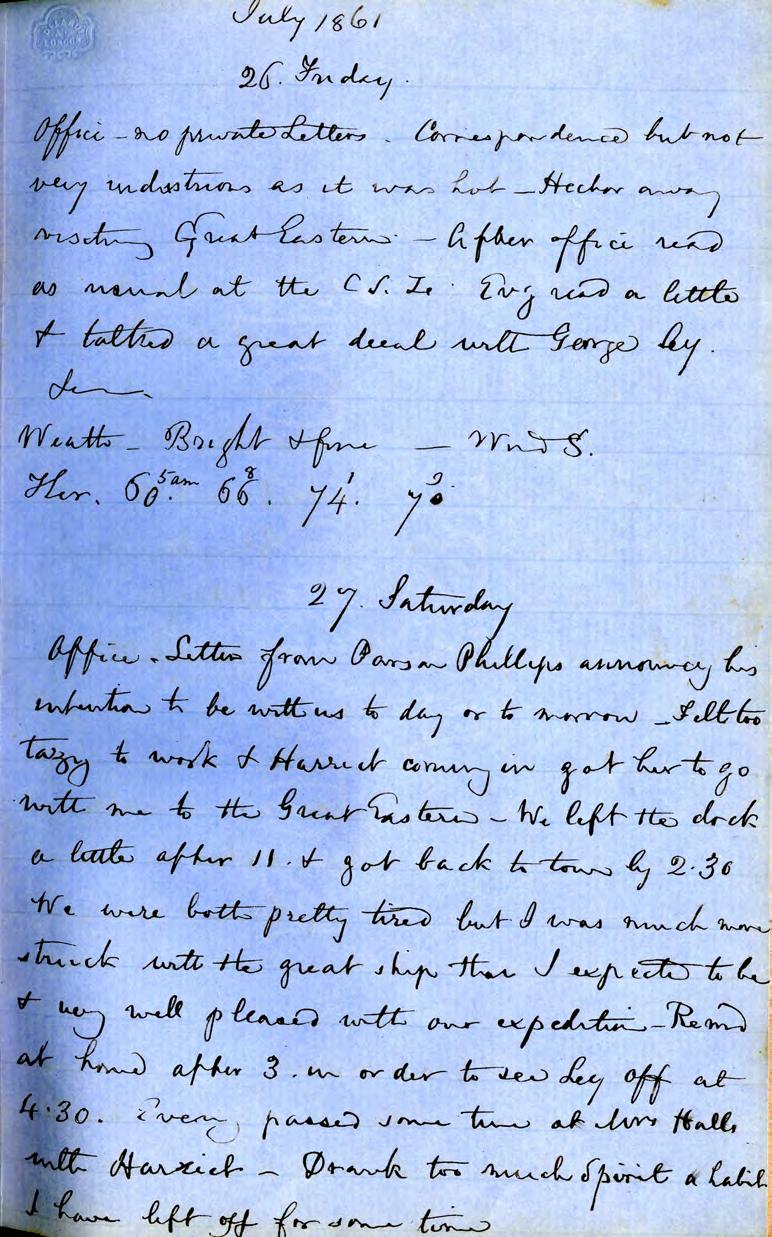 July 1861
26. Friday.
Office - no private Letters. Correspondence but not
very industrious as it was hot - Hector away
visiting Great Eastern - After office read
as usual at the C S. Ie. Evg read a little
& talked a great deal with George Ley.
Weathr - Bright & fine - Wind S.
Ther. 60 5am 66 8. 74 1. 70 9
27. Saturday
Office. Letter from Parson Phillips announcg his
intention to be with us to day or to morrow - Felt too
lazy to work & Harriet coming in got her to go
with me to the Great Eastern - We left the dock
a little after 11. & got back to town by 2.30
We were both pretty tired but I was much more
struck with the great ship than I expected to be
& very well pleased with our expedition - Remd
at home after 3. in order to see Ley off at
4.30. Eveng passed some time at Mrs Halls
with Harriet - Drank too much Spirit a habit
I have left off for some time